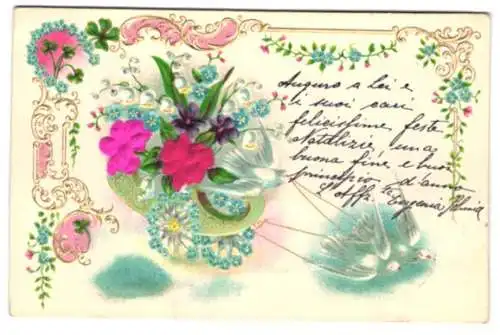 Auguro a lei e
ai suoi cari
felicissime feste
Natalizie, una
buona fine e buon
principio d'anno
L'Aff. Eugenia